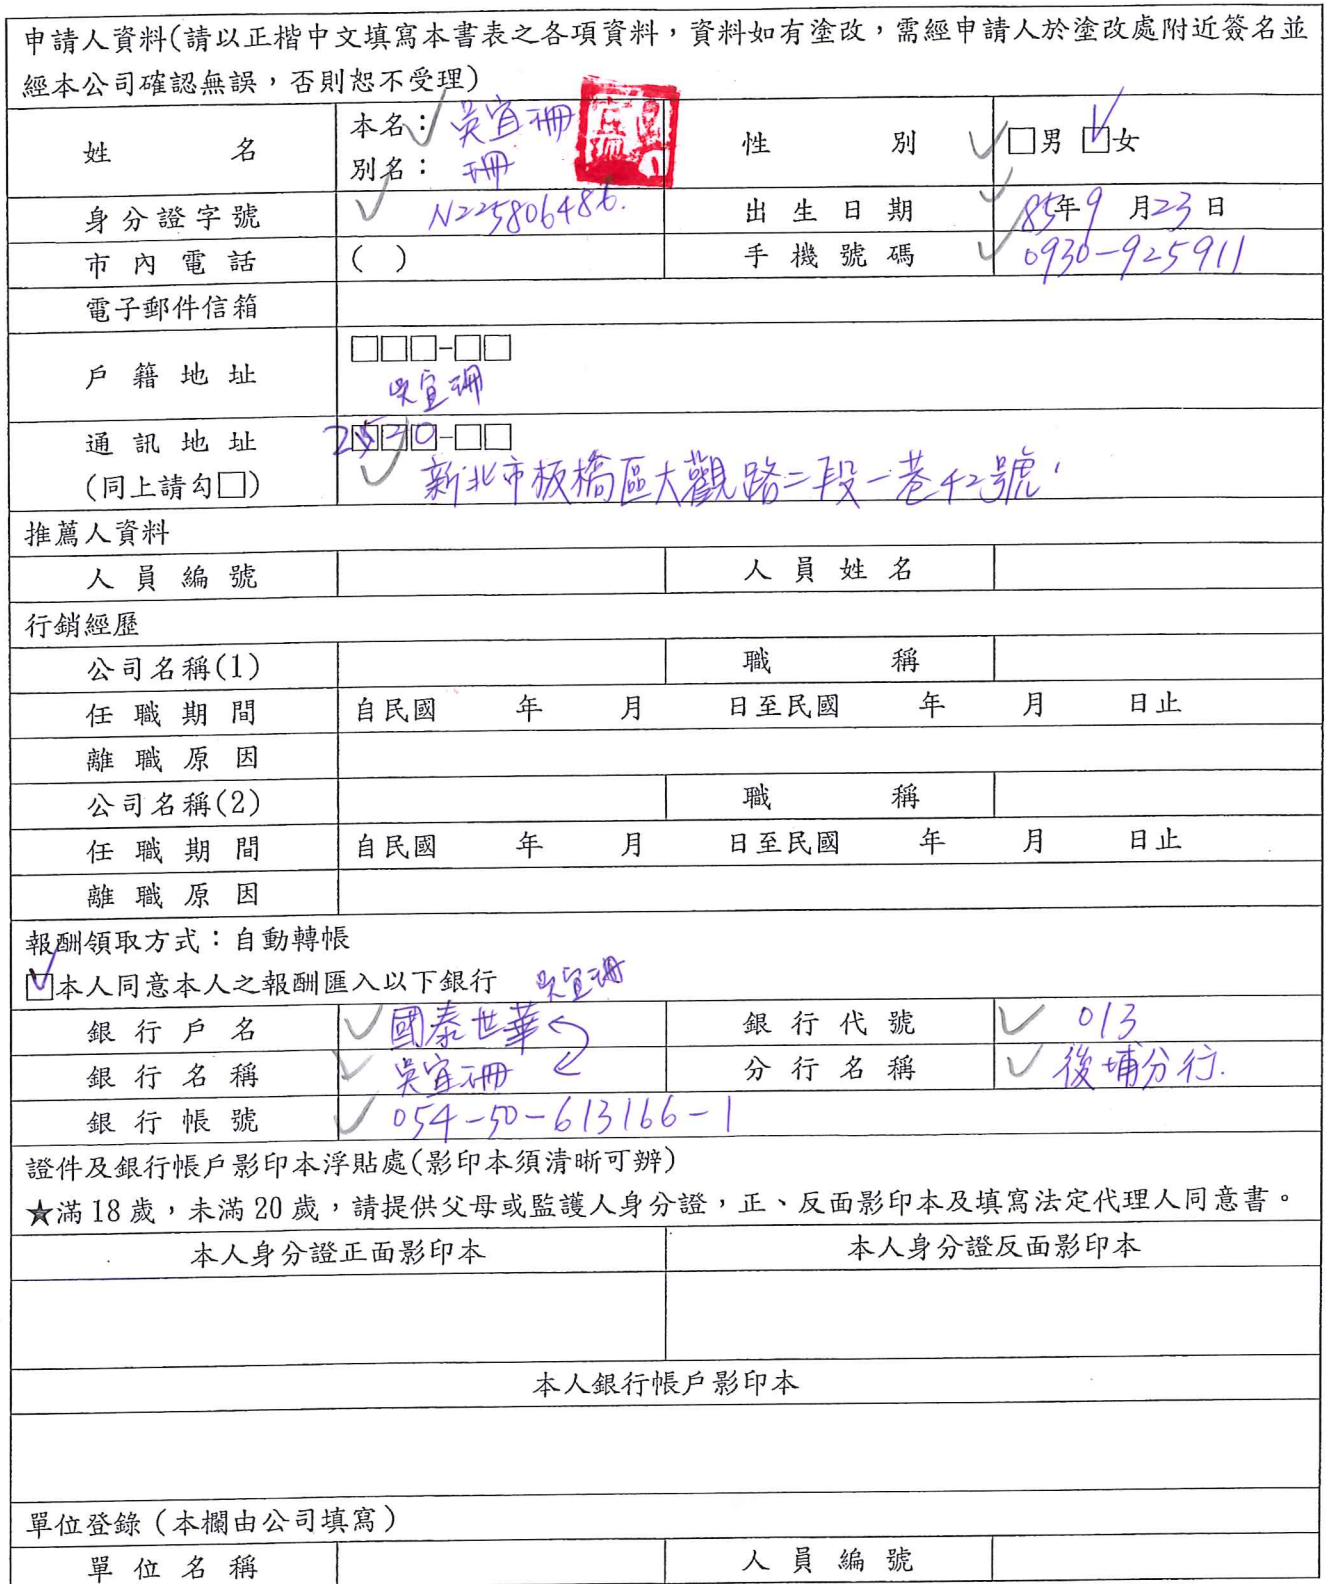 申請人資料(請以正楷中文填寫本書表之各項資料，資料如有塗改，需經申請人於塗改處附近簽名並
經本公司確認無誤，否則恕不受理)
姓 名 本名：吳宜珊 性 別 □男 □女
別名：珊
身分證字號 N225806486. 出生日期 85年9月23日
市內電話 ( ) 手機號碼 0930-925911
電子郵件信箱
戶籍地址 □□□-□□
吳宜珊
通訊地址 □□□-□□
(同上請勾□) 新北市板橋區大觀路二段一巷42號
推薦人資料
人員編號 人員姓名
行銷經歷
公司名稱(1) 職 稱
任職期間 自民國 年 月 日至民國 年 月 日止
離職原因
公司名稱(2) 職 稱
任職期間 自民國 年 月 日至民國 年 月 日止
離職原因
報酬領取方式：自動轉帳
□本人同意本人之報酬匯入以下銀行 吳宜珊
銀行戶名 國泰世華 銀行代號 013
銀行名稱 吳宜珊 分行名稱 後埔分行.
銀行帳號 054-50-613166-1
證件及銀行帳戶影印本浮貼處(影印本須清晰可辨)
★滿18歲，未滿20歲，請提供父母或監護人身分證，正、反面影印本及填寫法定代理人同意書。
本人身分證正面影印本 本人身分證反面影印本
本人銀行帳戶影印本
單位登錄（本欄由公司填寫）
單位名稱 人員編號